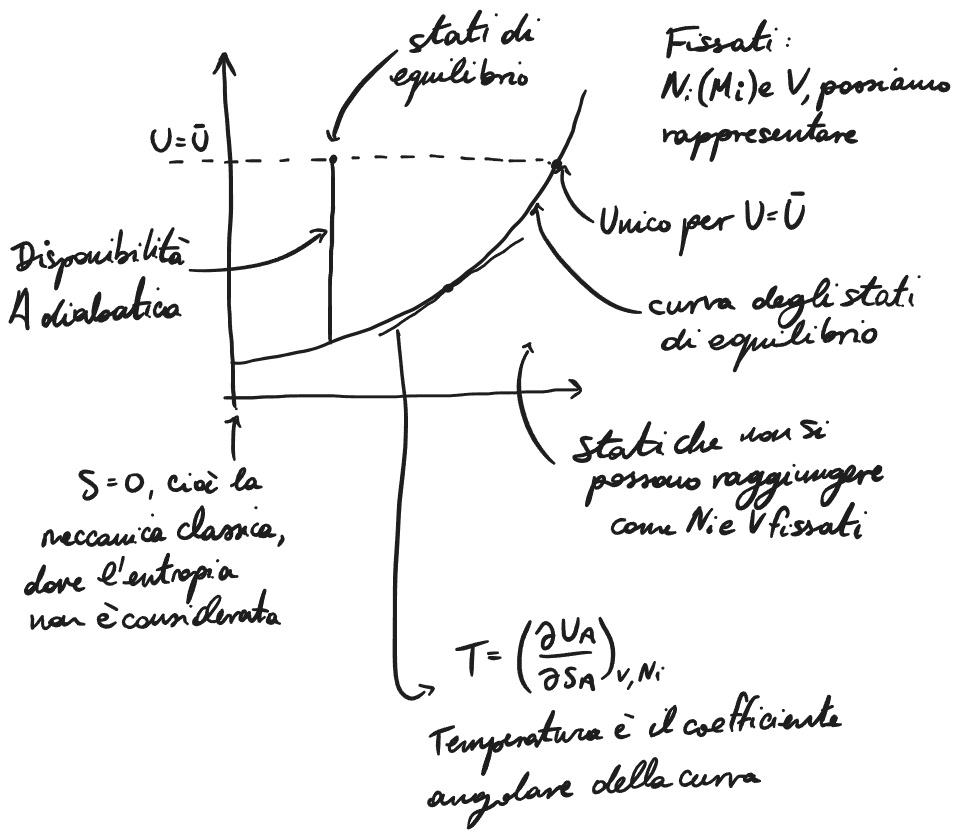 stati di
equilibrio
Fissati:
Ni (Mi) e V, possiamo
rappresentare
U = Ū
Unico per U = Ū
Disponibilità
Adiabatica
curva degli stati
di equilibrio
stati che non si
possono raggiungere
come Ni e V fissati
S = 0, cioè la
meccanica classica,
dove l'entropia
non è considerata
T = (∂U_A / ∂S_A)_{V, Ni}
Temperatura è il coefficiente
angolare della curva